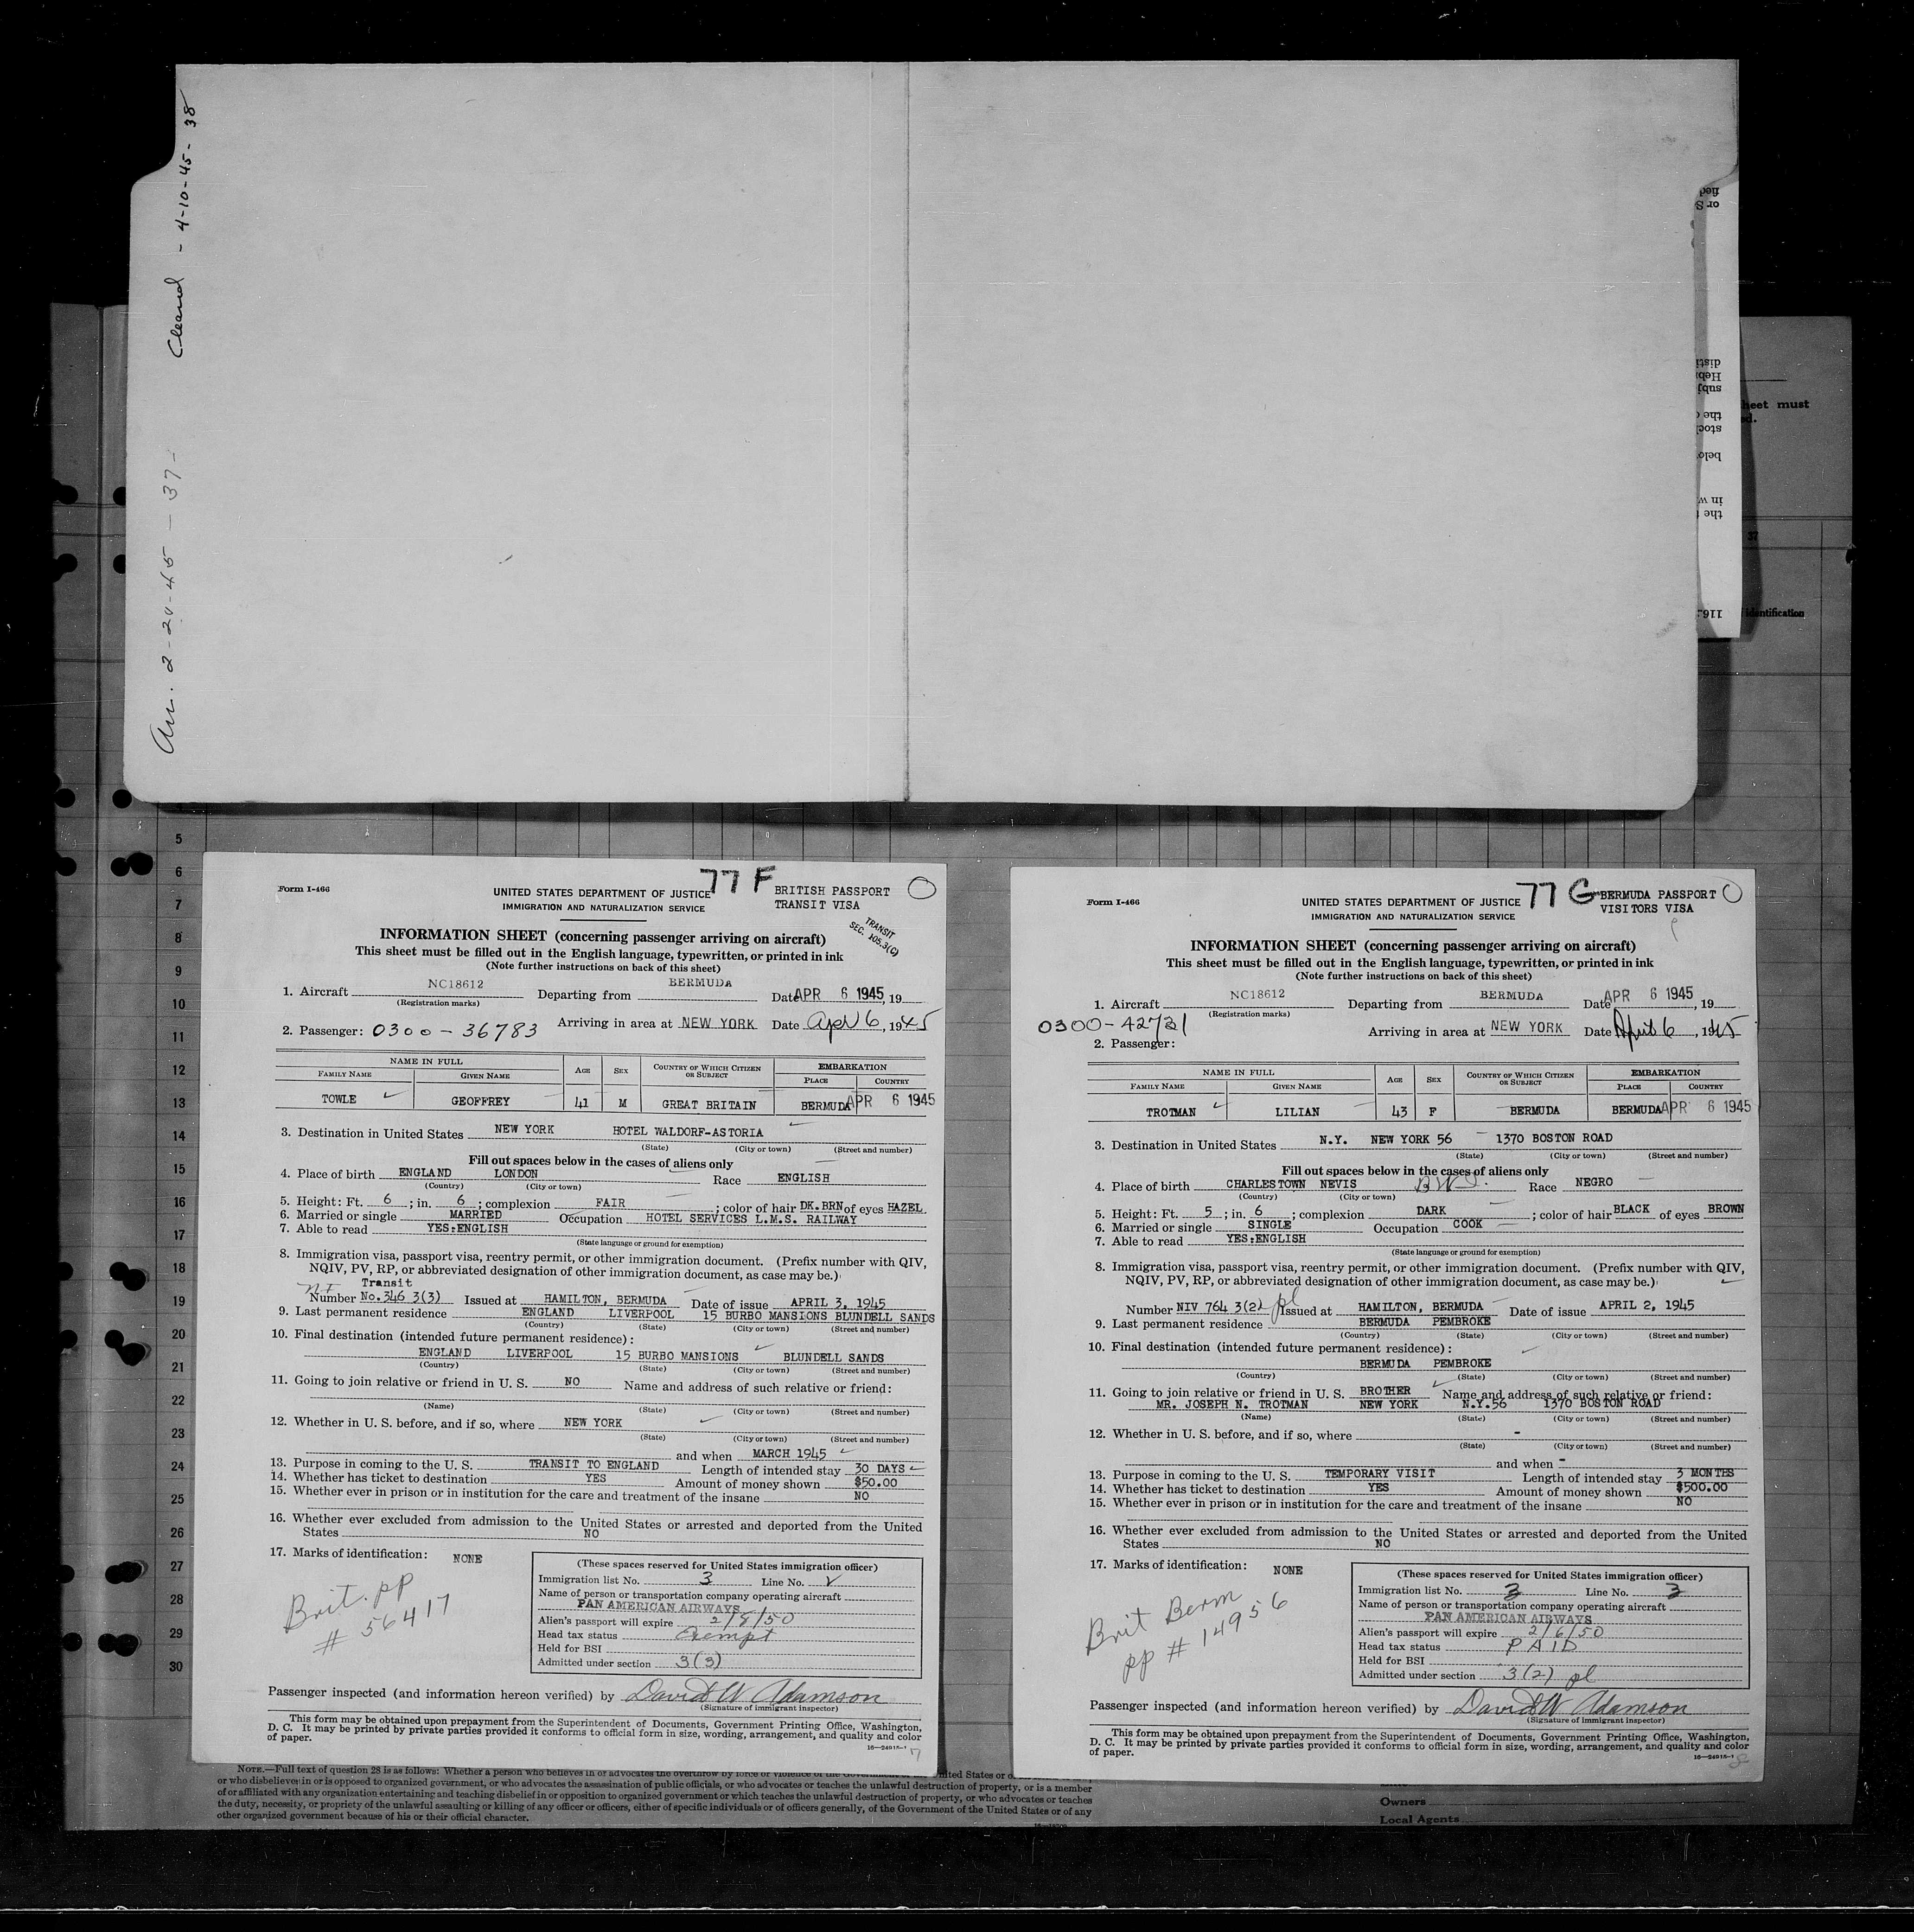 Cleared - 4-10-45- 38
Arr. 2-20-45 - 37-
ned
or S
disti
Heb
subj
the
stoc
belo
in w
the
116
heet must
ed.
37
identification
5
6
7
8
9
10
11
12
13
14
15
16
17
18
19
20
21
22
23
24
25
26
27
28
29
30
Form I-466
77 F
BRITISH PASSPORT
TRANSIT VISA
UNITED STATES DEPARTMENT OF JUSTICE
IMMIGRATION AND NATURALIZATION SERVICE
TRANSIT
SEC. 105.3(C)
INFORMATION SHEET (concerning passenger arriving on aircraft)
This sheet must be filled out in the English language, typewritten, or printed in ink
(Note further instructions on back of this sheet)
1. Aircraft NC18612 Departing from BERMUDA Date APR 6 1945, 19
(Registration marks)
2. Passenger: 0300-36783 Arriving in area at NEW YORK Date Apr 6, 1945
NAME IN FULL AGE SEX COUNTRY OF WHICH CITIZEN OR SUBJECT EMBARKATION
FAMILY NAME GIVEN NAME PLACE COUNTRY
TOWLE GEOFFREY 41 M GREAT BRITAIN BERMUDA APR 6 1945
3. Destination in United States NEW YORK HOTEL WALDORF-ASTORIA
(State) (City or town) (Street and number)
Fill out spaces below in the cases of aliens only
4. Place of birth ENGLAND LONDON Race ENGLISH
(Country) (City or town)
5. Height: Ft. 6; in. 6; complexion FAIR; color of hair DK.BRN of eyes HAZEL
6. Married or single MARRIED Occupation HOTEL SERVICES L.M.S. RAILWAY
7. Able to read YES:ENGLISH
(State language or ground for exemption)
8. Immigration visa, passport visa, reentry permit, or other immigration document. (Prefix number with QIV,
NQIV, PV, RP, or abbreviated designation of other immigration document, as case may be.)
Transit
Number No.346 3(3) Issued at HAMILTON, BERMUDA Date of issue APRIL 3, 1945
9. Last permanent residence ENGLAND LIVERPOOL 15 BURBO MANSIONS BLUNDELL SANDS
(Country) (State) (City or town) (Street and number)
10. Final destination (intended future permanent residence):
ENGLAND LIVERPOOL 15 BURBO MANSIONS BLUNDELL SANDS
(Country) (State) (City or town) (Street and number)
11. Going to join relative or friend in U. S. NO Name and address of such relative or friend:
(Name) (State) (City or town) (Street and number)
12. Whether in U. S. before, and if so, where NEW YORK
(State) (City or town) (Street and number)
and when MARCH 1945
13. Purpose in coming to the U. S. TRANSIT TO ENGLAND Length of intended stay 30 DAYS
14. Whether has ticket to destination YES Amount of money shown $50.00
15. Whether ever in prison or in institution for the care and treatment of the insane NO
16. Whether ever excluded from admission to the United States or arrested and deported from the United
States NO
17. Marks of identification: NONE
Brit. pp
# 56417
(These spaces reserved for United States immigration officer)
Immigration list No. 3 Line No. 2
Name of person or transportation company operating aircraft
PAN AMERICAN AIRWAYS
Alien's passport will expire 2/8/50
Head tax status Exempt
Held for BSI
Admitted under section 3(3)
Passenger inspected (and information hereon verified) by David W Adamson
(Signature of immigrant inspector)
This form may be obtained upon prepayment from the Superintendent of Documents, Government Printing Office, Washington,
D. C. It may be printed by private parties provided it conforms to official form in size, wording, arrangement, and quality and color
of paper.
16—24915-1
17
Form I-466
77 G
BERMUDA PASSPORT
VISITORS VISA
UNITED STATES DEPARTMENT OF JUSTICE
IMMIGRATION AND NATURALIZATION SERVICE
INFORMATION SHEET (concerning passenger arriving on aircraft)
This sheet must be filled out in the English language, typewritten, or printed in ink
(Note further instructions on back of this sheet)
1. Aircraft NC18612 Departing from BERMUDA Date APR 6 1945, 19
(Registration marks)
0300-42731 Arriving in area at NEW YORK Date April 6, 1945
2. Passenger:
NAME IN FULL AGE SEX COUNTRY OF WHICH CITIZEN OR SUBJECT EMBARKATION
FAMILY NAME GIVEN NAME PLACE COUNTRY
TROTMAN LILIAN 43 F BERMUDA BERMUDA APR 6 1945
3. Destination in United States N.Y. NEW YORK 56 1370 BOSTON ROAD
(State) (City or town) (Street and number)
Fill out spaces below in the cases of aliens only
4. Place of birth CHARLESTOWN NEVIS B.W.I. Race NEGRO
(Country) (City or town)
5. Height: Ft. 5; in. 6; complexion DARK; color of hair BLACK of eyes BROWN
6. Married or single SINGLE Occupation COOK
7. Able to read YES:ENGLISH
(State language or ground for exemption)
8. Immigration visa, passport visa, reentry permit, or other immigration document. (Prefix number with QIV,
NQIV, PV, RP, or abbreviated designation of other immigration document, as case may be.)
Number NIV 764 3(2) pl Issued at HAMILTON, BERMUDA Date of issue APRIL 2, 1945
9. Last permanent residence BERMUDA PEMBROKE
(Country) (State) (City or town) (Street and number)
10. Final destination (intended future permanent residence):
BERMUDA PEMBROKE
(Country) (State) (City or town) (Street and number)
11. Going to join relative or friend in U. S. BROTHER Name and address of such relative or friend:
MR. JOSEPH N. TROTMAN NEW YORK N.Y.56 1370 BOSTON ROAD
(Name) (State) (City or town) (Street and number)
12. Whether in U. S. before, and if so, where -
(State) (City or town) (Street and number)
and when -
13. Purpose in coming to the U. S. TEMPORARY VISIT Length of intended stay 3 MONTHS
14. Whether has ticket to destination YES Amount of money shown $500.00
15. Whether ever in prison or in institution for the care and treatment of the insane NO
16. Whether ever excluded from admission to the United States or arrested and deported from the United
States NO
17. Marks of identification: NONE
Brit Berm
pp # 14956
(These spaces reserved for United States immigration officer)
Immigration list No. 3 Line No. 3
Name of person or transportation company operating aircraft
PAN AMERICAN AIRWAYS
Alien's passport will expire 2/6/50
Head tax status PAID
Held for BSI
Admitted under section 3(2) pl
Passenger inspected (and information hereon verified) by David W Adamson
(Signature of immigrant inspector)
This form may be obtained upon prepayment from the Superintendent of Documents, Government Printing Office, Washington,
D. C. It may be printed by private parties provided it conforms to official form in size, wording, arrangement, and quality and color
of paper.
16—24915-1
NOTE.—Full text of question 28 is as follows: Whether a person who believes in or advocates the overthrow by force or violence of the Government of the United States or
or who disbelieves in or is opposed to organized government, or who advocates the assassination of public officials, or who advocates or teaches the unlawful destruction of property, or is a member
of or affiliated with any organization entertaining and teaching disbelief in or opposition to organized government or which teaches the unlawful destruction of property, or who advocates or teaches
the duty, necessity, or propriety of the unlawful assaulting or killing of any officer or officers, either of specific individuals or of officers generally, of the Government of the United States or of any
other organized government because of his or their official character.
Owners
Local Agents